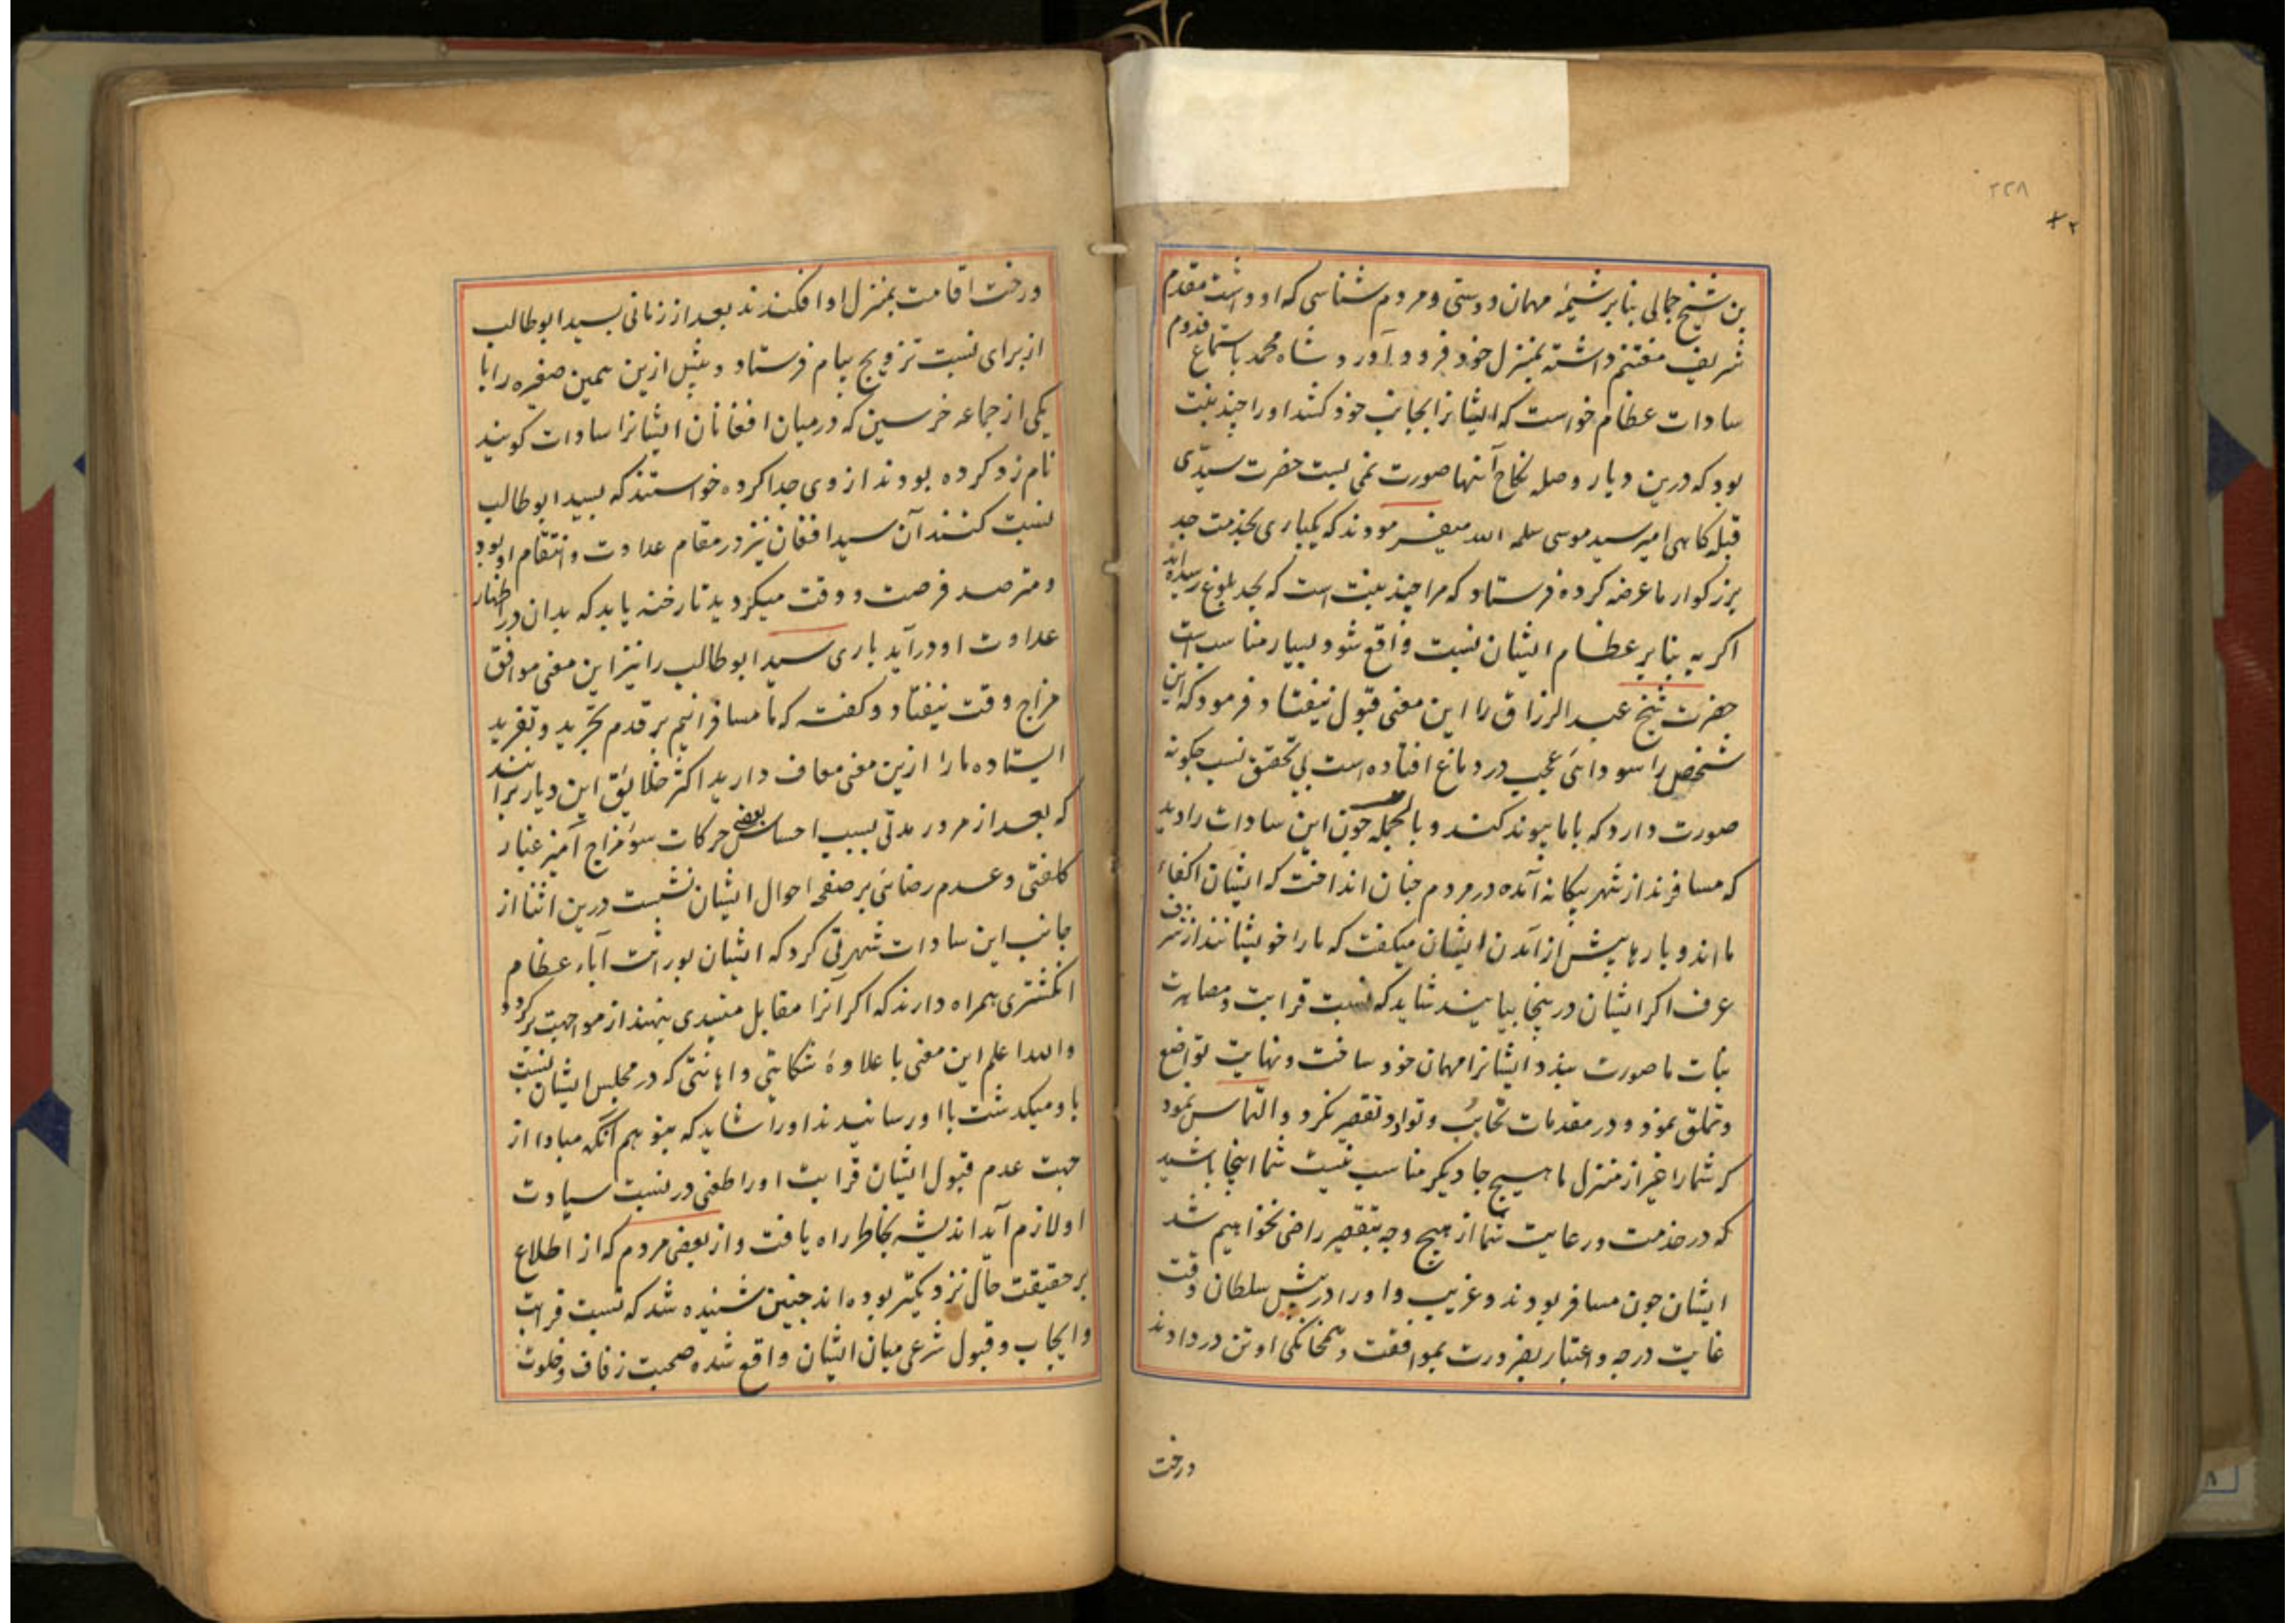 ۲۲۸
۲
بن شیخ جمالی بنابر شیمهٔ مهمان دوستی و مردم شناسی که او داشت مقدم
شریف مغتنم داشته بمنزل خود فرود آورد و شاه محمد باستماع قدوم
سادات عظام خواست که ایشانرا بجانب خود کشد او را چند بنت
بود که درین دیار وصله نکاح آنها صورت نمی بست حضرت سیدی
قبله کاهی امیر سید موسی سلمه الله میفرمودند که یکباری بخدمت جد
بزرکوار ما عرضه کرده فرستاد که مرا چند بنت است که بحد بلوغ رسیده اند
اکر به بنابر عظام ایشان نسبت واقع شود بسیار مناسب است
حضرت شیخ عبد الرزاق را این معنی قبول نیفتاد و فرمود که این
شخص را سودائی عجب در دماغ افتاده است بی تحقق نسب چکونه
صورت دارد که با ما پیوند کند و بالجمله چون این سادات را دید
که مسافرند از شهر بیکانه آمده در مردم چنان انداخت که ایشان اکفاء
ما اند و بارها پیش از آمدن ایشان میکفت که ما را خویشانند از شرف
عرف اکر ایشان درینجا بیایند شاید که نسبت قرابت و مصاهرت
بنات ما صورت بندد ایشانرا مهمان خود ساخت و نهایت تواضع
و تملق نمود و در مقدمات تحابب و تواد تقصیر نکرد و التماس نمود
که شما را غیر از منزل ما هیچ جا دیکر مناسب نیست شما اینجا باشید
که در خدمت و رعایت شما از هیچ وجه بتقصیر راضی نخواهیم شد
ایشان چون مسافر بودند و غریب و او را در پیش سلطان وقت
غایت درجه و اعتبار بضرورت بموافقت و همخانکی او تن در دادند
درخت
درخت اقامت بمنزل او افکندند بعد از زمانی بسید ابو طالب
از برای نسبت تزویج پیام فرستاد و پیش ازین همین صغیره را با
یکی از جماعه خرسین که درمیان افغانان ایشانرا سادات کویند
نام زد کرده بودند از وی جدا کرده خواستند که بسید ابو طالب
نسبت کنند آن سید افغان نیز در مقام عداوت و انتقام او بود
و مترصد فرصت و وقت میکردید تا رخنه یابد که بدان در اظهار
عداوت او درآید باری سید ابو طالب را نیز این معنی موافق
مزاج وقت نیفتاد و کفت که ما مسافرانیم بر قدم تجرید و تفرید
ایستاده ما را ازین معنی معاف دارید اکثر خلایق این دیار برانند
که بعد از مرور مدتی بسبب احساس بعضی حرکات سوء مزاج آمیز غبار
کلفتی و عدم رضائی بر صفحه احوال ایشان نشست درین اثنا از
جانب این سادات شهرتی کرد که ایشان بوراثت آباء عظام
انکشتری همراه دارند که اکر آنرا مقابل مسندی نهند از مواجهت برکردد
والله اعلم این معنی با علاوهٔ شکایتی و اهانتی که در مجلس ایشان نسبت
باو میکذشت با او رسانیدند او را شاید که بتوهم آنکه مبادا از
جهت عدم قبول ایشان قرابت او را طعنی در نسبت سیادت
او لازم آید اندیشه بخاطر راه یافت و از بعضی مردم که از اطلاع
بر حقیقت حال نزدیکتر بوده اند چنین شنیده شد که نسبت قرابت
و ایجاب و قبول شرعی میان ایشان واقع شده صحبت زفاف و خلوت